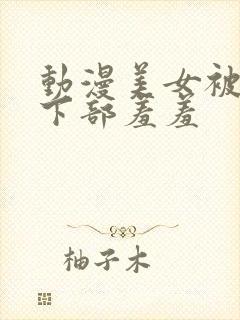 動漫美女被
下部羞羞
柚子木